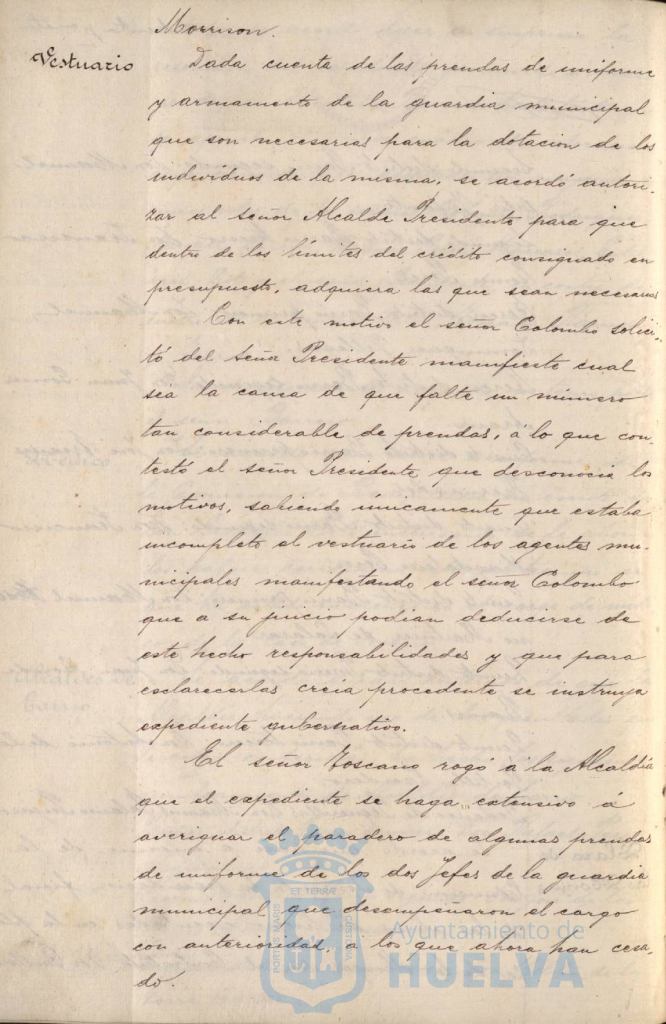 Morrison.
Vestuario
Dada cuenta de las prendas de uniforme
y armamento de la guardia municipal
que son necesarias para la dotacion de los
individuos de la misma, se acordó autori-
zar al señor Alcalde Presidente para que
dentro de los límites del crédito consignado en
presupuesto, adquiera las que sean necesarias
Con este motivo el señor Colombo solici-
tó del señor Presidente manifieste cual
sea la causa de que falte un número
tan considerable de prendas, á lo que con-
testó el señor Presidente que desconocia los
motivos, sabiendo únicamente que estaba
incompleto el vestuario de los agentes mu-
nicipales manifestando el señor Colombo
que á su juicio podian deducirse de
este hecho responsabilidades y que para
esclarecerlas creia procedente se instruya
expediente gubernativo.
El señor Toscano rogó á la Alcaldia
que el expediente se haga extensivo á
averiguar el paradero de algunas prendas
de uniforme de los dos Jefes de la guardia
municipal que desempeñaron el cargo
con anterioridad, á los que ahora han cesa-
do.
PORTUS MARIS ET TERRAE CUSTODIA
Ayuntamiento de
HUELVA